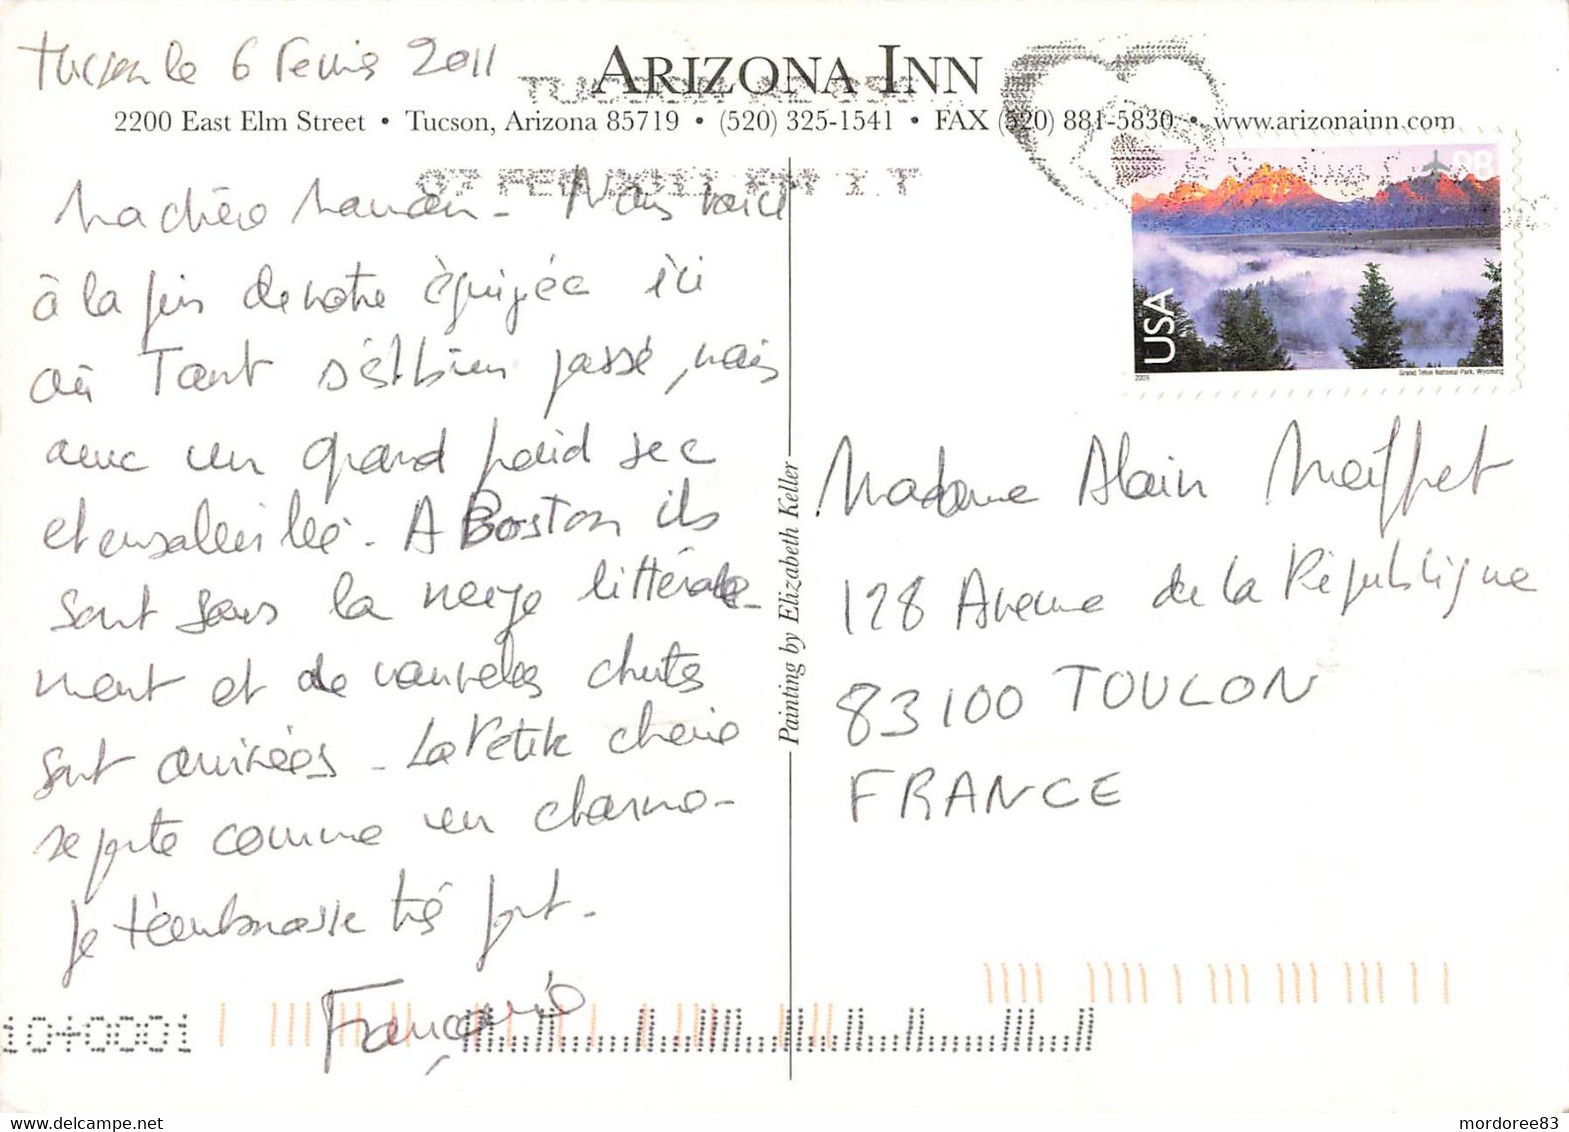 Tucson le 6 Fevrier 2011
ARIZONA INN
2200 East Elm Street • Tucson, Arizona 85719 • (520) 325-1541 • FAX (520) 881-5830 • www.arizonainn.com
07 FEB 2011 PM 1 T
Ma chère Maman - Nous voici
à la fin de notre équipée ici
où Tout s'est bien passé, mais
avec un grand froid sec
et ensoleillé. A Boston ils
sont sous la neige littérale-
ment et de nouvelles chutes
sont arrivées - La Petite chérie
se porte comme un charme -
Je t'embrasse très fort -
Painting by Elizabeth Keller
98
USA
2009
Grand Teton National Park, Wyoming
Madame Alain
128 Avenue de la République
83100 TOULON
FRANCE
10+0001
mordoree83